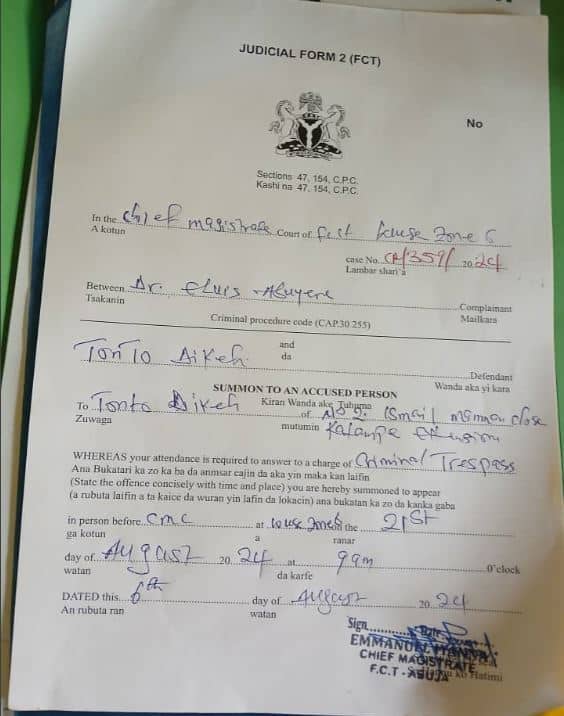 JUDICIAL FORM 2 (FCT)
No
Sections 47, 154, C.P.C.
Kashi na 47, 154, C.P.C.
In the Chief magistrate Court of Wuse Zone 6
A kotun
case No. CR/359/ 2024
Lambar shari'a
Between Dr. Elvis Abuyere Complainant
Tsakanin Mailkara
Criminal procedure code (CAP.30 255)
and
TONTO DIKEH da
Defendant
Wanda aka yi kara
SUMMON TO AN ACCUSED PERSON
Kiran Wanda ake Tuhuma
To Tonto Dikeh of No 2. Ismail mamman close
Zuwaga mutumin Katampe Extension
WHEREAS your attendance is required to answer to a charge of Criminal Trespass
Ana Bukatari ka zo ka ba da anmsar cajin da aka yin maka kan laifin
(State the offence concisely with time and place) you are hereby summoned to appear
(a rubuta laifin a ta kaice da wuran yin lafin da lokacin) ana bukatan ka zo da kanka gaba
in person before CMC at Wuse Zone 6 the 21st
ga kotun a ranar
day of August 2024 at 9am O'clock
watan da karfe
DATED this 6th day of August 2024
An rubuta ran watan
Sign
EMMANUEL
CHIEF MAGISTRATE
F.C.T - ABUJA
Hatimi